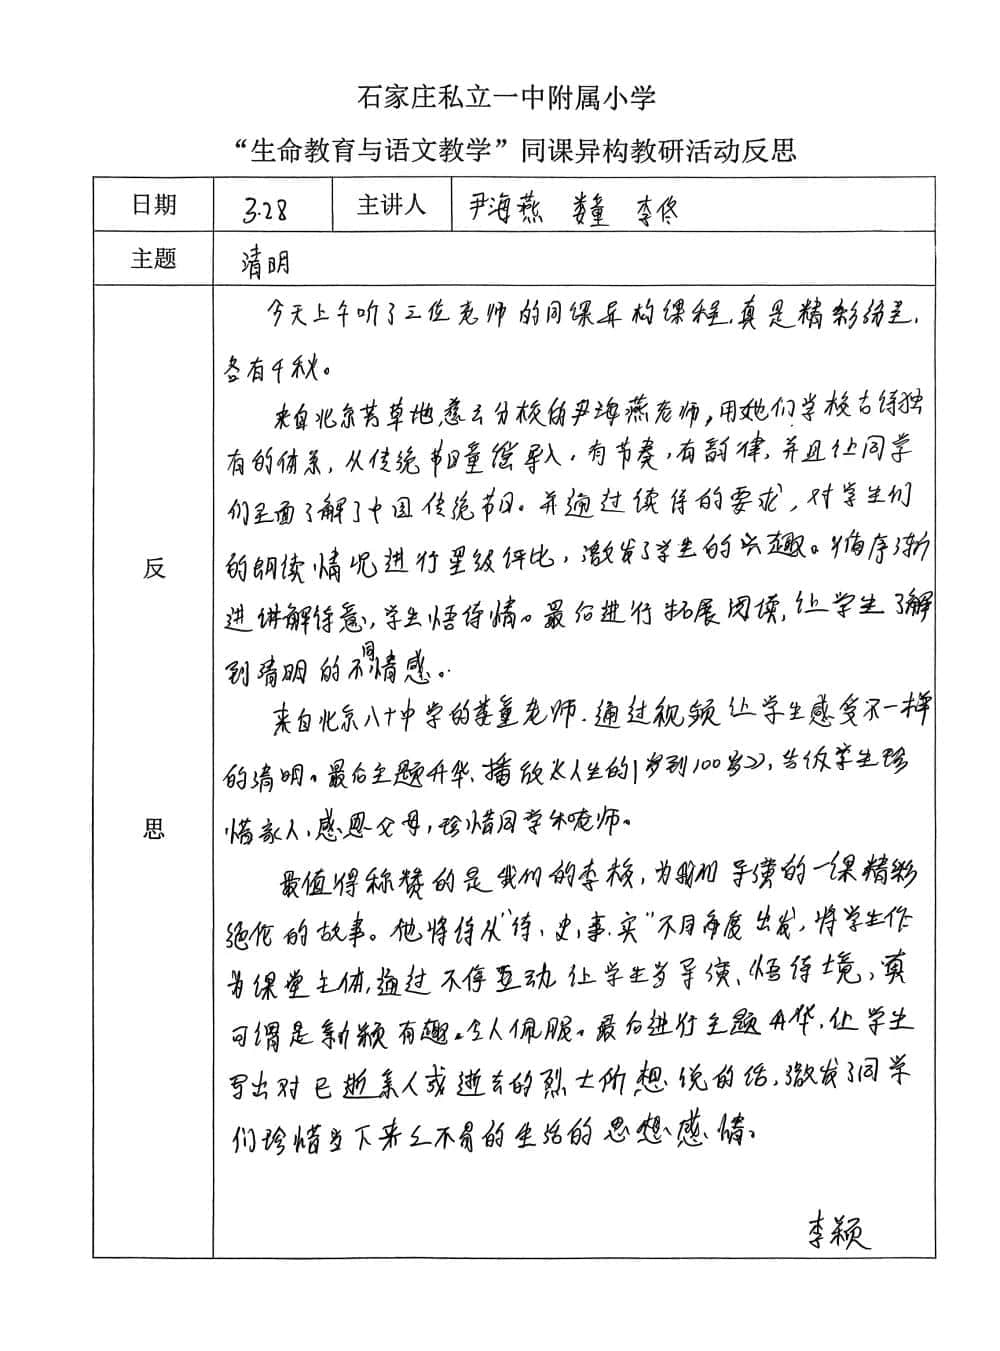 石家庄私立一中附属小学
“生命教育与语文教学”同课异构教研活动反思
日期 3.28 主讲人 尹海燕 娄童 李佟
主题 清明
反思
今天上午听了三位老师的同课异构课程,真是精彩纷呈,
各有千秋。
来自北京芳草地慈云分校的尹海燕老师,用她们学校古诗独
有的体系,从传统节日童谣导入,有节奏,有韵律,并且让同学
们全面了解了中国传统节日。并通过读诗的要求,对学生们
的朗读情况进行星级评比,激发了学生的兴趣。循序渐
进讲解诗意,学生悟诗情。最后进行拓展阅读,让学生了解
到清明的不同情感。
来自北京八十中学的娄童老师.通过视频让学生感受不一样
的清明。最后主题升华、播放《人生的1岁到100岁》,告诉学生珍
惜家人,感恩父母,珍惜同学和老师。
最值得称赞的是我们的李校,为我们导演的一课精彩
绝伦的故事。他将诗从“诗、史、事、实”不同角度出发,将学生作
为课堂主体,通过不停互动让学生当导演、悟诗境,真
可谓是新颖有趣。令人佩服。最后进行主题升华,让学生
写出对已逝亲人或逝去的烈士所想说的话,激发了同学
们珍惜当下来之不易的生活的思想感情。
李颖